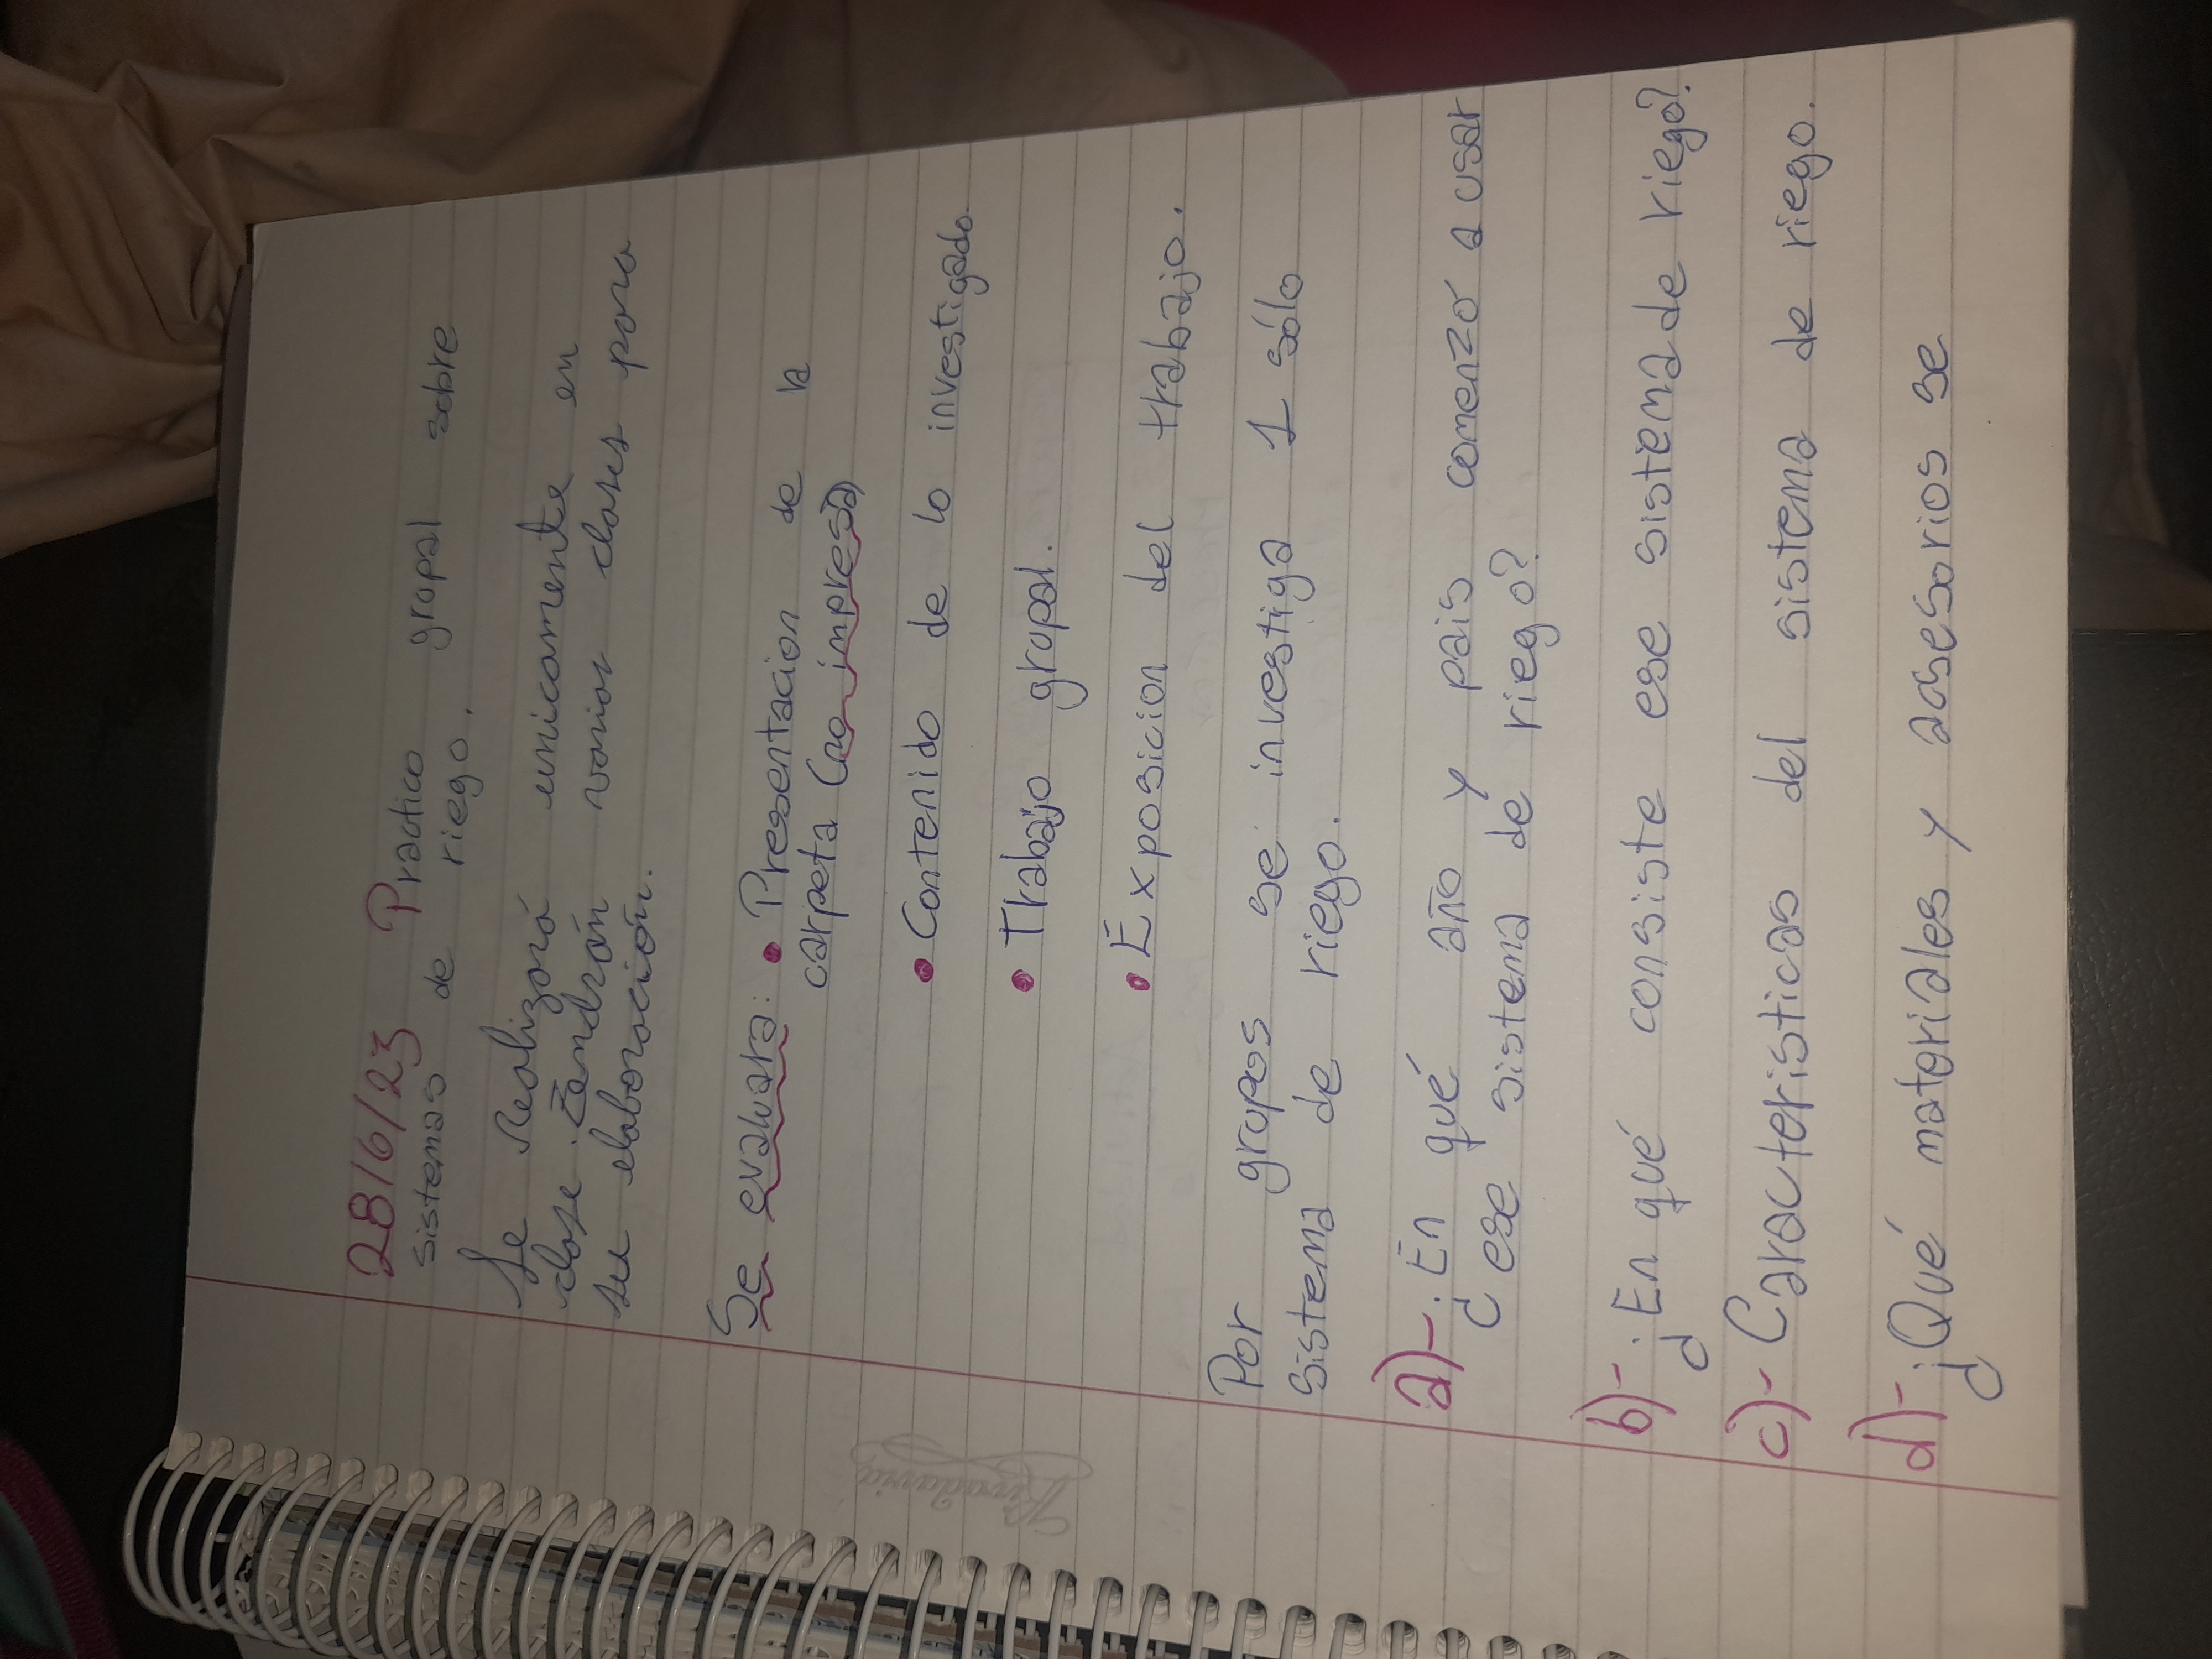 28/6/23 Practico grupal sobre
sistemas de riego.
Se realizará unicamente en
clase. Tendrán varias clases para
su elaboración.
Se evaluara: • Presentacion de la
carpeta (no impresa)
• Contenido de lo investigado.
• Trabajo grupal.
• Exposicion del trabajo.
Por grupos se investiga 1 sólo
sistema de riego.
a)- ¿En qué año y pais comenzó a usar
ese sistema de riego?
b)- ¿En qué consiste ese sistema de riego?
c)- Caracteristicas del sistema de riego.
d)- ¿Qué materiales y acsesorios se
Rivadavia